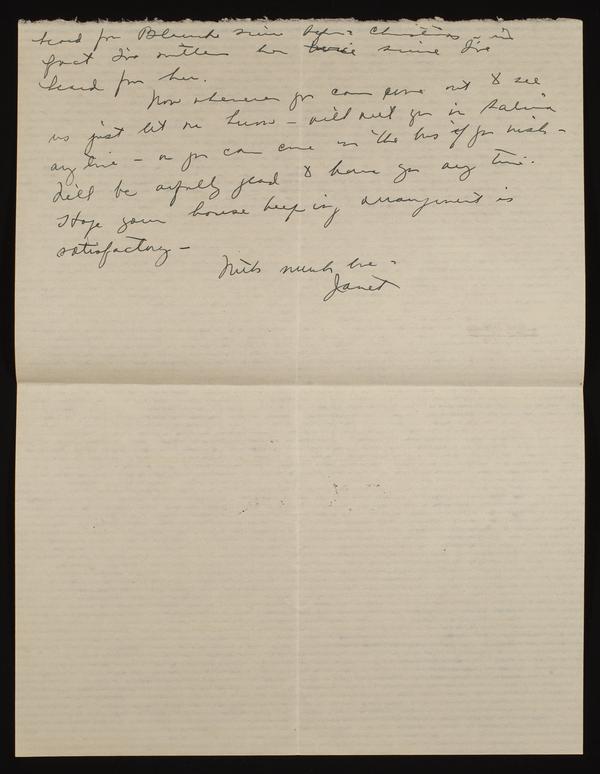 heard from Blanche since before Christmas - in
fact I've written her twice since I've
heard from her.
Now whenever you can come out & see
us just let me know - will meet you in Salina
any time - or you can come on the bus if you wish -
We'll be awfully glad to have you any time.
Hope your house keeping arrangement is
satisfactory -
With much love -
Janet